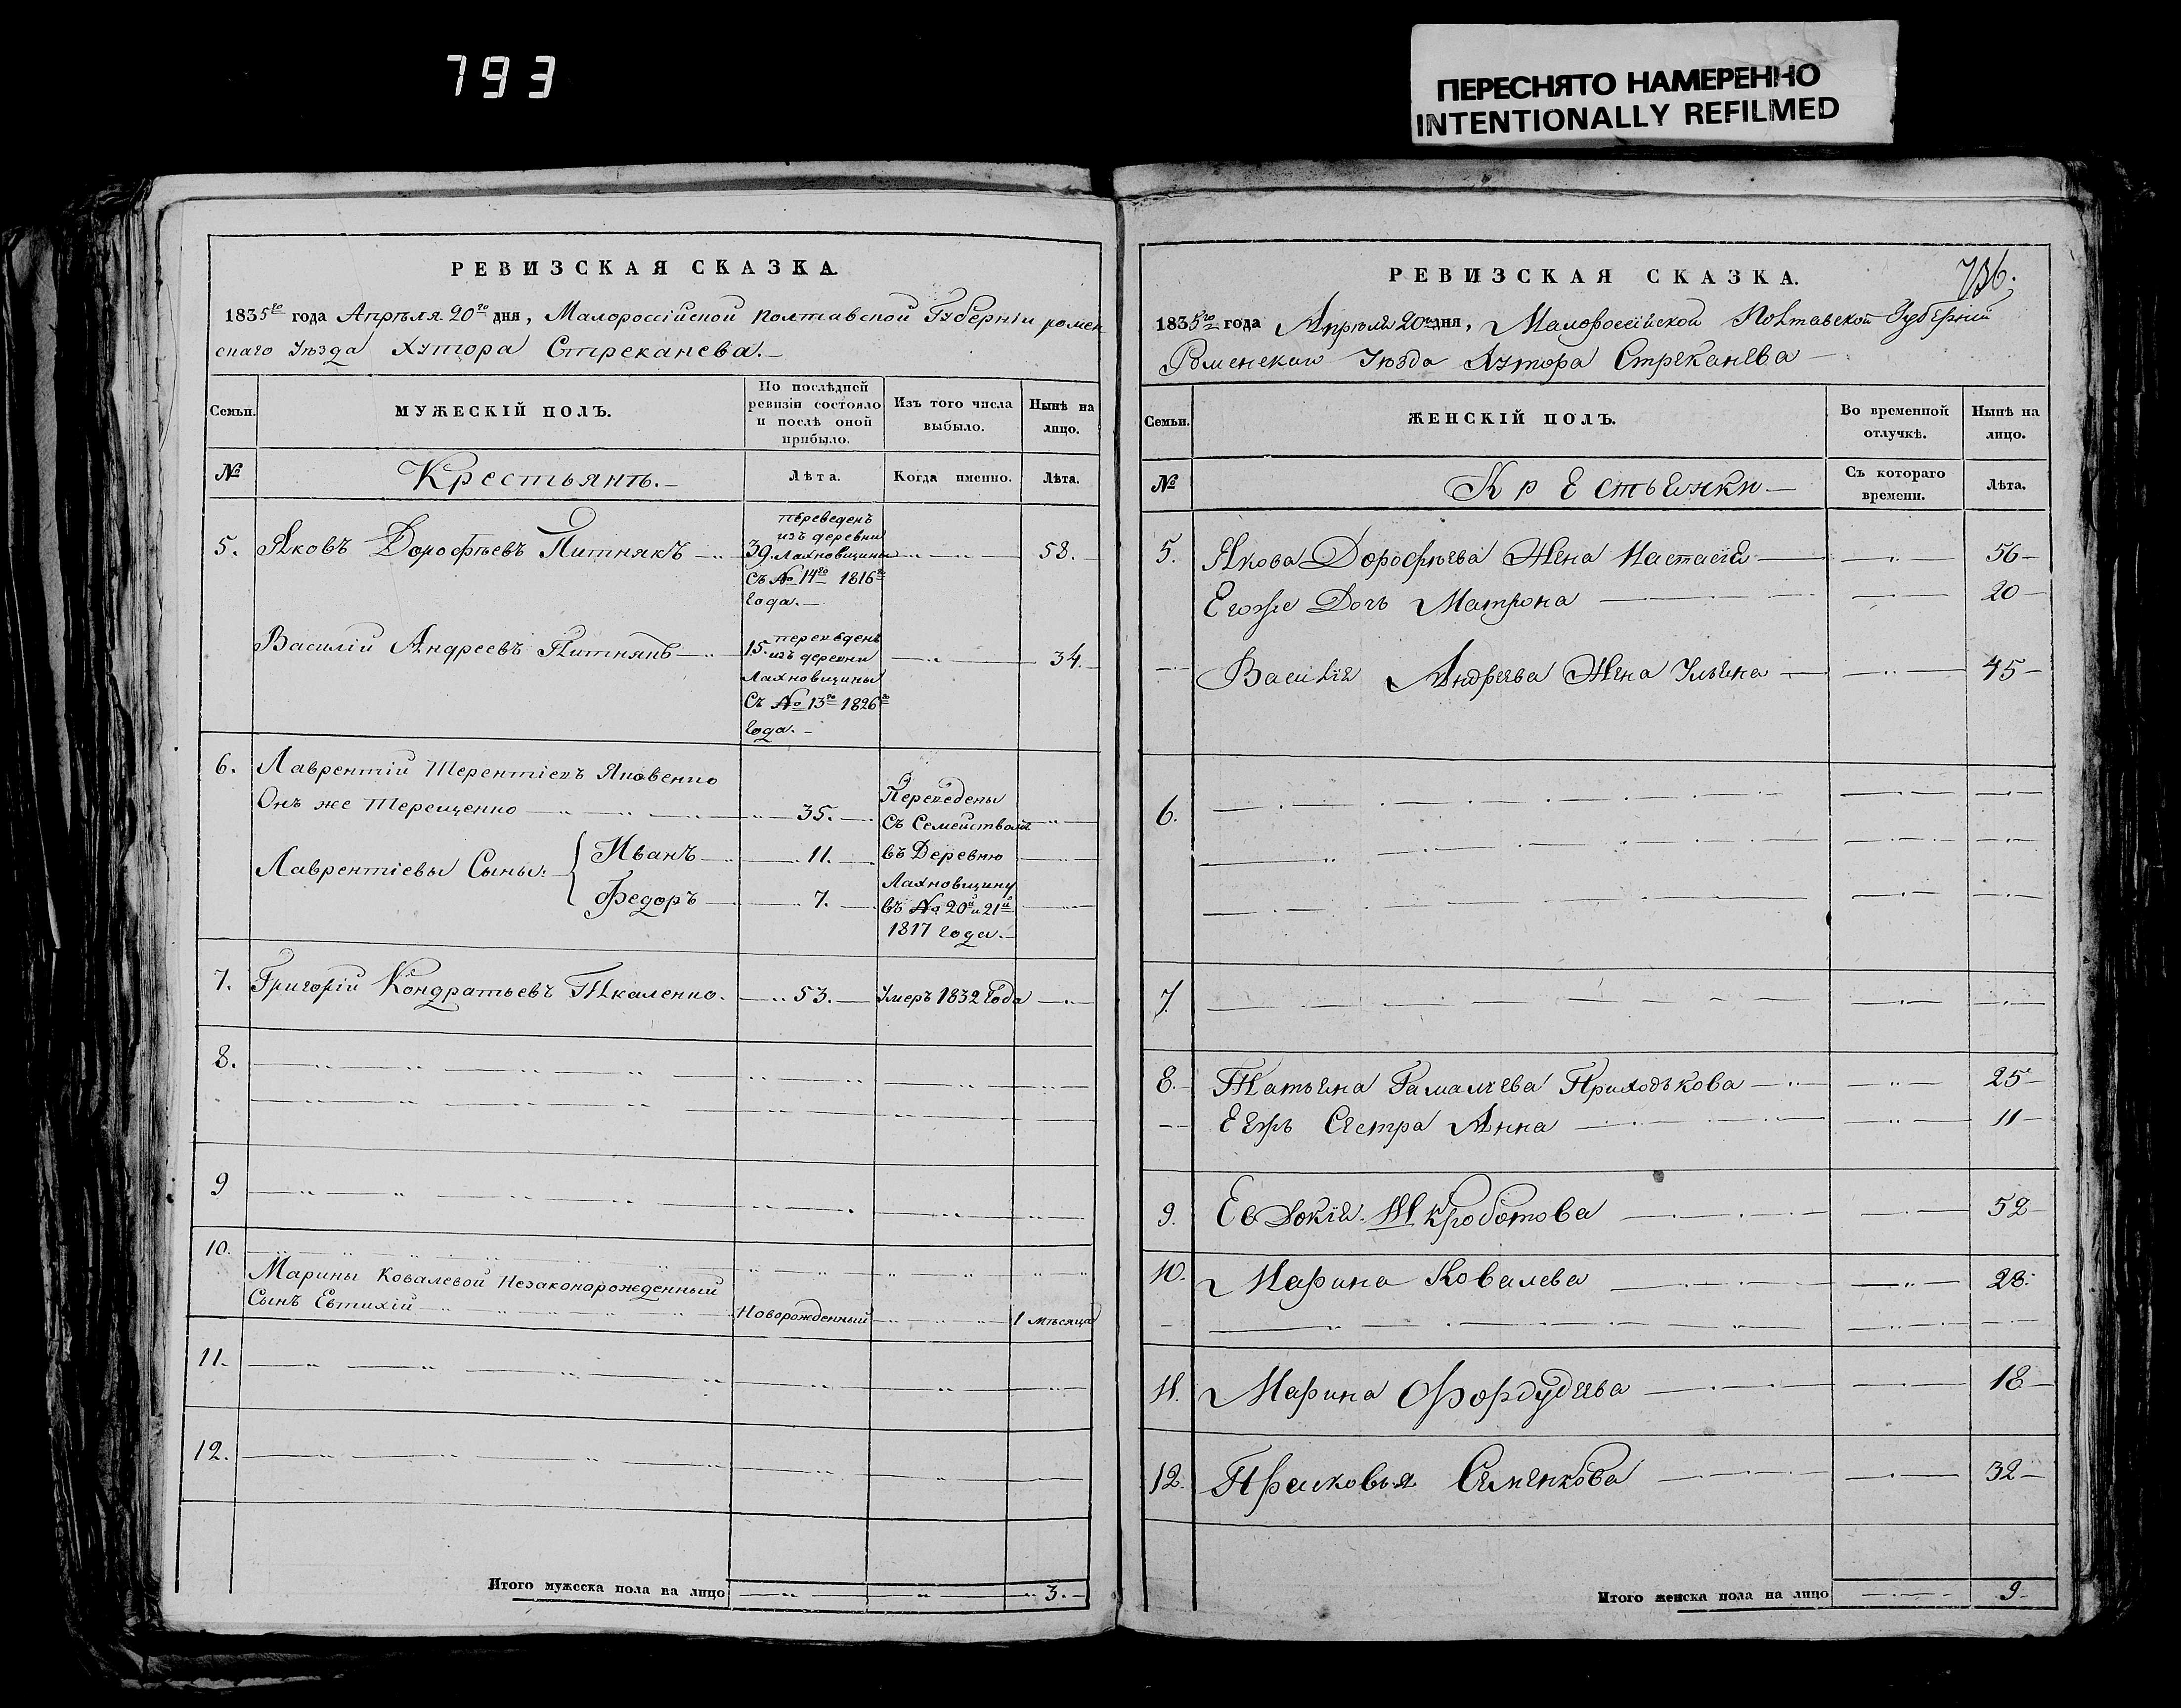 793
ПЕРЕСНЯТО НАМЕРЕННО
INTENTIONALLY REFILMED
РЕВИЗСКАЯ СКАЗКА.
1835го года Апрѣля 20го дня, Малороссійской Полтавской Губерніи ромен
скаго Уѣзда Хутора Стреканева.
Семьи.
МУЖЕСКІЙ ПОЛЪ.
По послѣдней
ревизіи состояло
и послѣ оной
прибыло.
Изъ того числа
выбыло.
Нынѣ на
лицо.
№
Крестьянъ.
Лѣта.
Когда именно.
Лѣта.
5. Яковъ Дорофѣевъ Питнякъ
переведенъ
изъ деревни
39. Лахновщины
58.
Съ № 14го 1816го
Года.
Василій Андреевъ Питнякъ
15. переведенъ
изъ деревни
34.
Лахновщины
Съ № 13го 1826го
Года.
6. Лаврентій Терентіевъ Яковенко
Онъ же Терещенко
35.
Переведены
Съ Семействомъ
Лаврентіевы Сыны:
Иванъ
11.
въ Деревню
Федоръ
7.
Лахновщину
въ № 20й и 21й
1817 Года.
7. Григорій Кондратьевъ Ткаленко.
53.
Умеръ 1832 Года
8.
9
10.
Марины Ковалевой Незаконорожденный
Сынъ Евтихій
Новорожденный
1 мѣсяца
11.
12.
Итого мужеска пола на лицо
3.
РЕВИЗСКАЯ СКАЗКА.
736.
1835го года Апрѣля 20го дня, Малороссійской Полтавской Губерніи
Роменскаго Уѣзда Хутора Стреканева
Семьи.
ЖЕНСКІЙ ПОЛЪ.
Во временной
отлучкѣ.
Нынѣ на
лицо.
№
Крестьянки
Съ котораго
времени.
Лѣта.
5. Якова Дорофѣева Жена Настасія 56
Егоже Дочь Матрона 20
Василія Андреева Жена Ульяна 45
6.
7.
8. Татьяна Гамалѣева Приходькова 25
Еяжъ Сестра Анна 11
9. Евдокія Шкроботова 52
10. Марина Ковалева 28
11. Марина Фордудева 18
12. Прасковья Семенкова 32
Итого женска пола на лицо
9